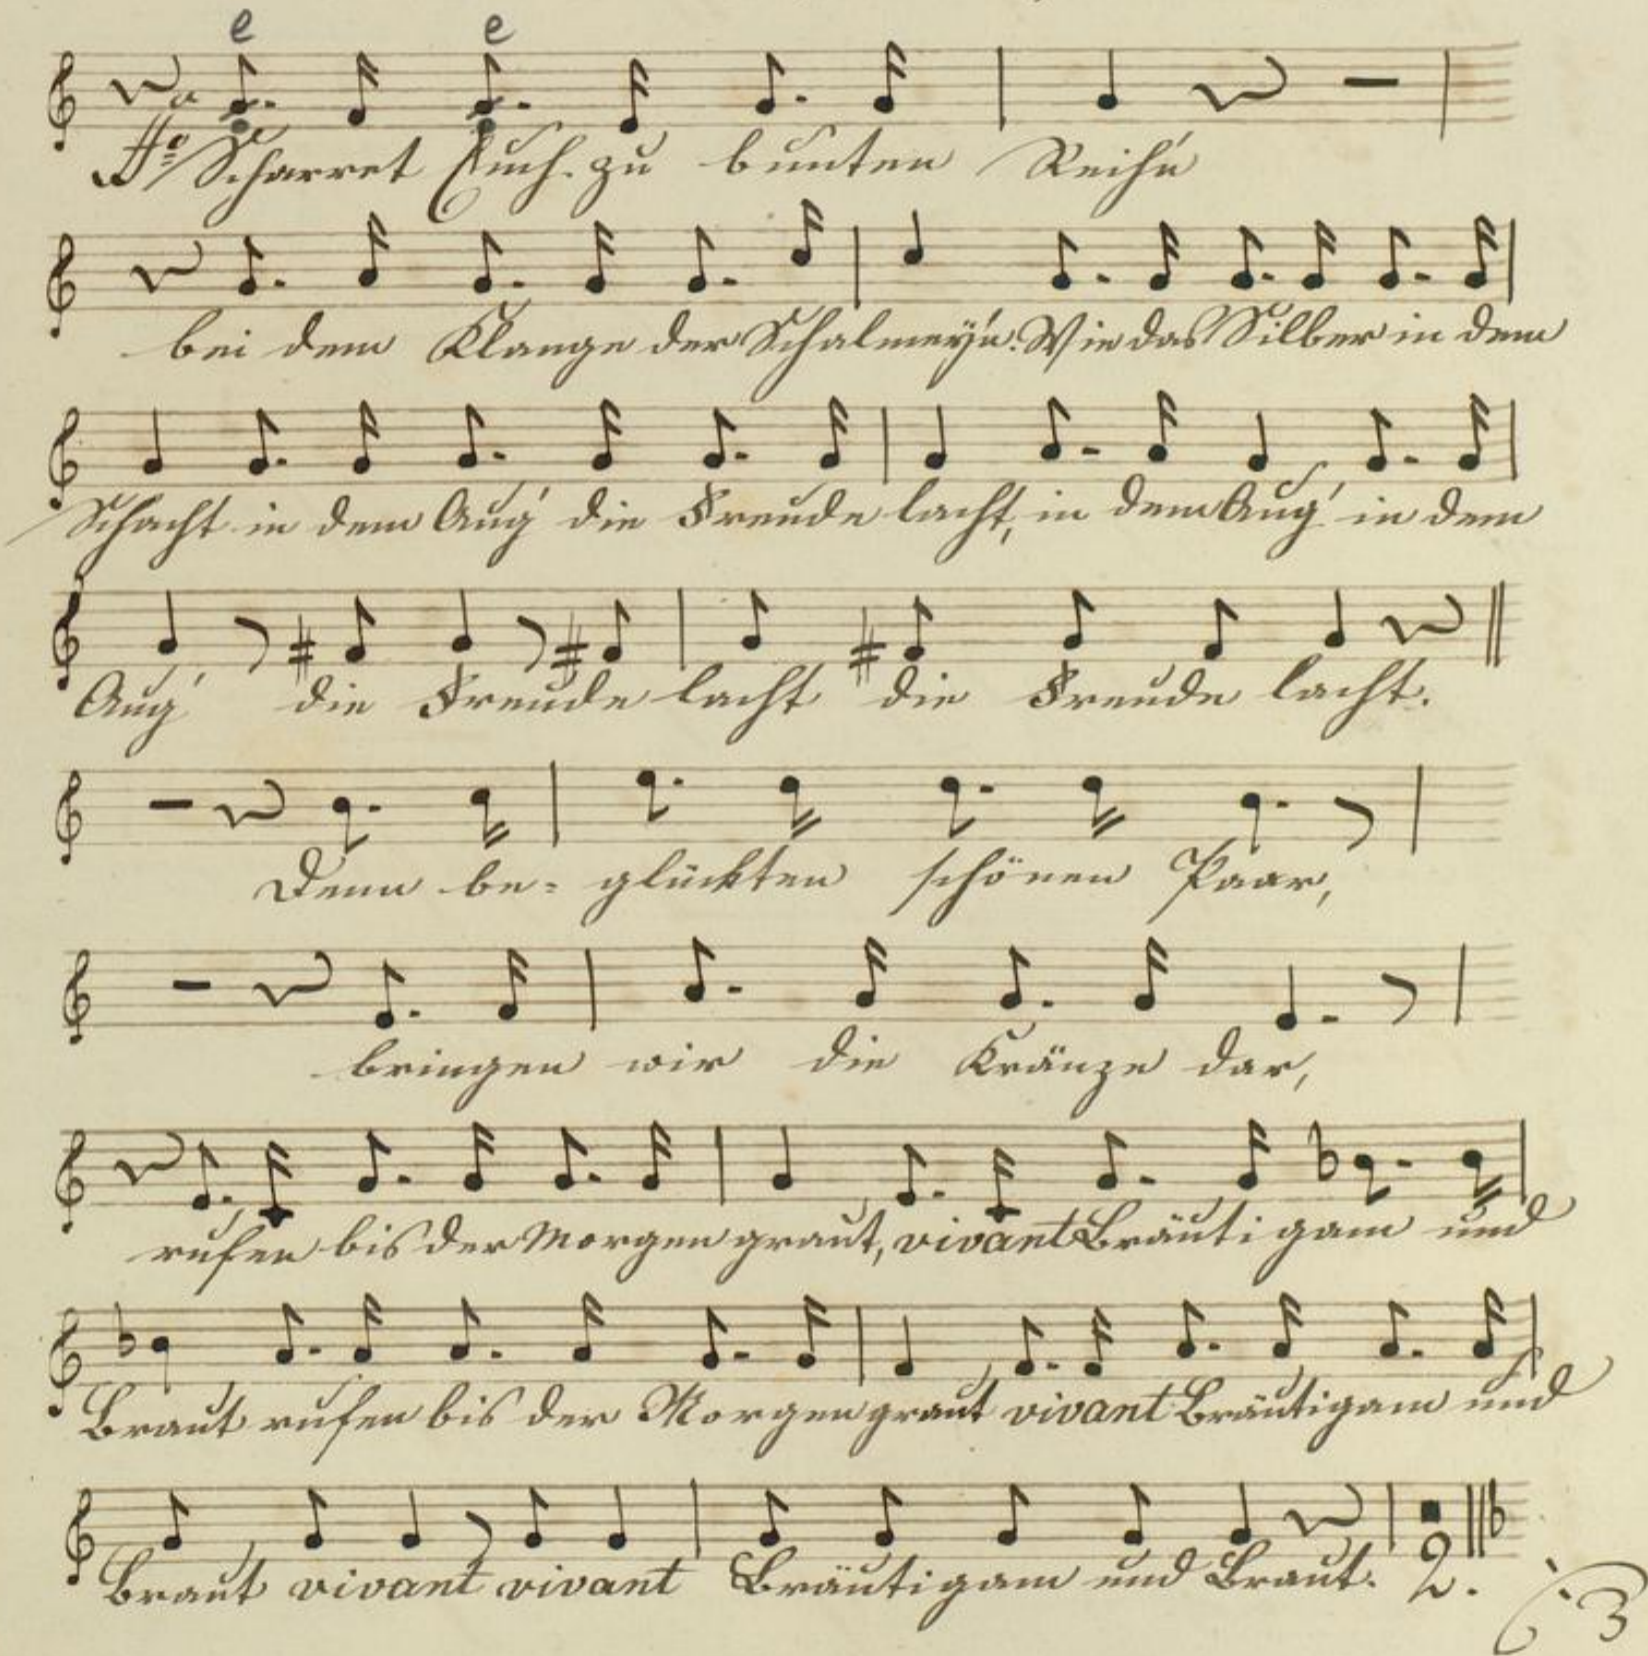 e e
Scharret Euch zu bunten Reih'n
bei dem Klange der Schalmeÿ'n. Wie das Silber in dem
Schacht in dem Aug' die Freude lacht, in dem Aug' in dem
Aug' die Freude lacht die Freude lacht.
Denn be= glückten schönen Paar,
bringen wir die Kränze dar,
rufen bis der Morgen graut, vivant Bräutigam und
Braut rufen bis der Morgen graut vivant Bräutigam und
Braut vivant vivant Bräutigam und Braut. 2.
3